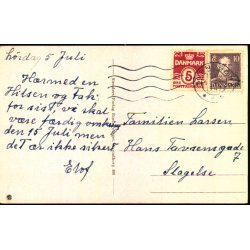 Lördag 5 Juli
Hermed en
Hilsen og Tak
for sist, vi skal
være færdig omkring
den 15 Juli men
det er ikke sikkert
Elof
DANMARK
5
10
DANMARK
Familien Larsen
Hans Tavsensgade 7
Slagelse